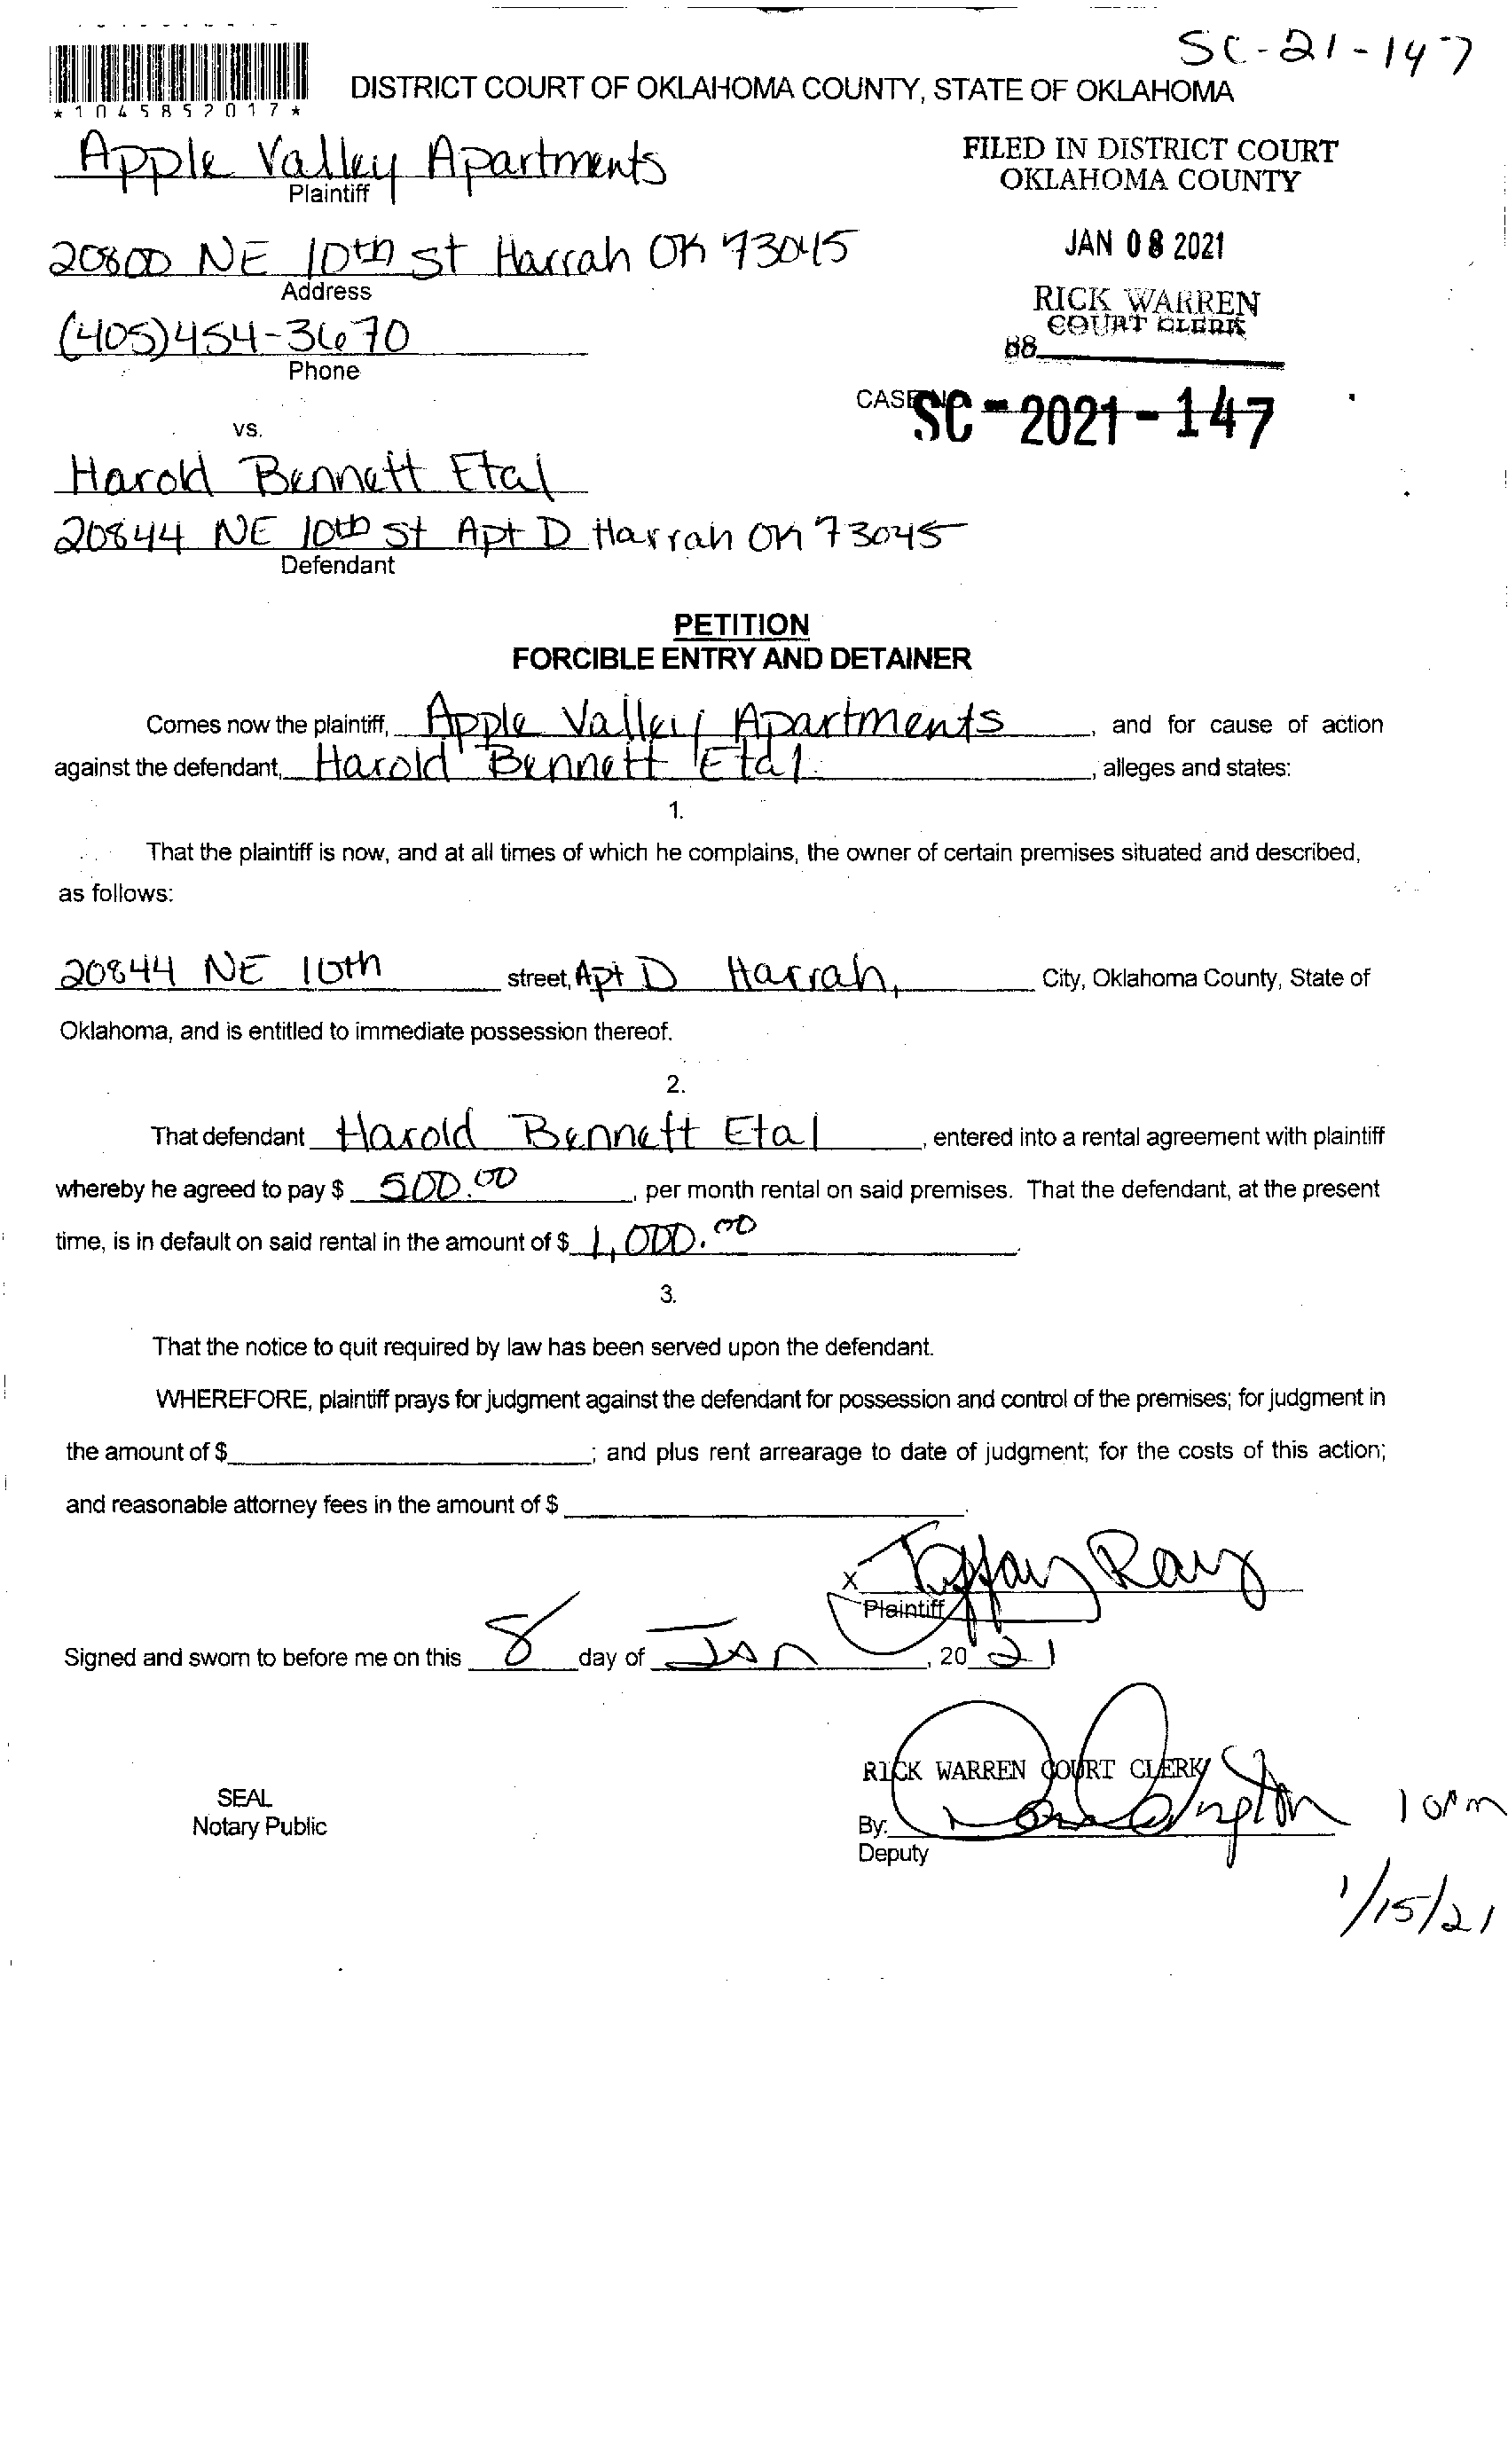 SC-21-147
*1045852017*
DISTRICT COURT OF OKLAHOMA COUNTY, STATE OF OKLAHOMA
Apple Valley Apartments
Plaintiff
FILED IN DISTRICT COURT
OKLAHOMA COUNTY
20800 NE 10th st Harrah OK 73045
Address
JAN 08 2021
(405)454-3670
Phone
RICK WARREN
COURT CLERK
88
CASE NO. SC-2021-147
vs.
Harold Bennett Etal
20844 NE 10th st Apt D Harrah OK 73045
Defendant
PETITION
FORCIBLE ENTRY AND DETAINER
Comes now the plaintiff, Apple Valley Apartments, and for cause of action
against the defendant, Harold Bennett Etal, alleges and states:
1.
That the plaintiff is now, and at all times of which he complains, the owner of certain premises situated and described,
as follows:
20844 NE 10th street, Apt D Harrah, City, Oklahoma County, State of
Oklahoma, and is entitled to immediate possession thereof.
2.
That defendant Harold Bennett Etal, entered into a rental agreement with plaintiff
whereby he agreed to pay $ 500.00, per month rental on said premises. That the defendant, at the present
time, is in default on said rental in the amount of $ 1,000.00.
3.
That the notice to quit required by law has been served upon the defendant.
WHEREFORE, plaintiff prays for judgment against the defendant for possession and control of the premises; for judgment in
the amount of $ ; and plus rent arrearage to date of judgment; for the costs of this action;
and reasonable attorney fees in the amount of $ .
x Tiffany Ray
Plaintiff
Signed and sworn to before me on this 8 day of Jan, 20 21
RICK WARREN COURT CLERK
SEAL
Notary Public
By:
Deputy
1/15/21